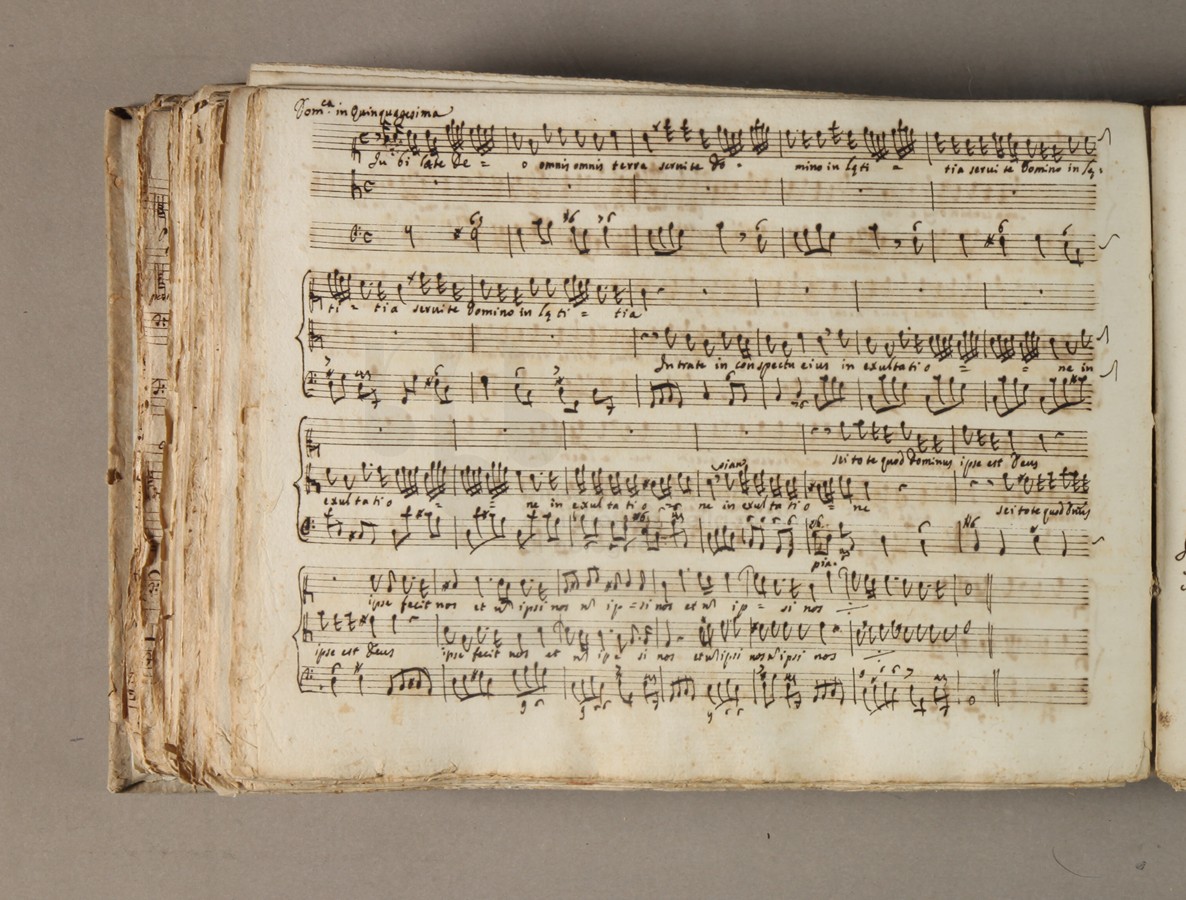 Dom.ca in Quinquagesima
Ju bi late De = o omnis omnis terra servite Do - mino in lęti = tia servite Domino in lę=
ti = tia servite Domino in lęti = tia
Intrate in conspectu eius in exultatio = = ne in
scitote quod Dominus ipse est Deus
pian
exultatio = = ne in exultatio ne in exultatio = ne scitote quod Dn̄us
pia.
ipse fecit nos et nō ipsi nos nō ip = si nos et nō ip = si nos
ipse est Deus ipse fecit nos et nō ip = si nos et nō ipsi nos nō ipsi nos